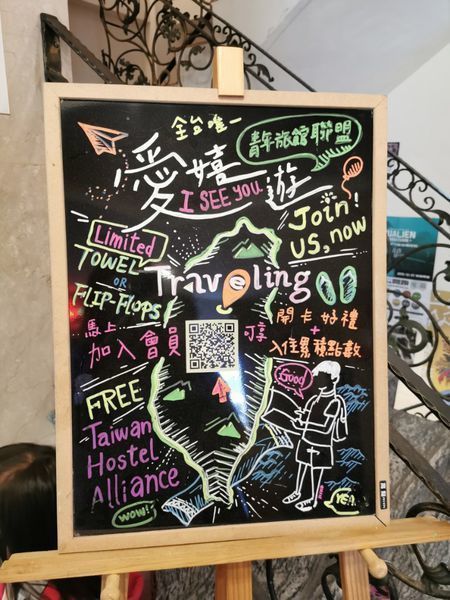 全台唯一
青年旅館聯盟
愛嬉遊
I SEE YOU
Join!
US, now
Limited
TOWEL
OR
FLIP-FLOPS
Traveling
馬上
加入會員
可享
開卡好禮
+
入住累積點數
FREE
Taiwan
Hostel
Alliance
Good
WOW!
YE!